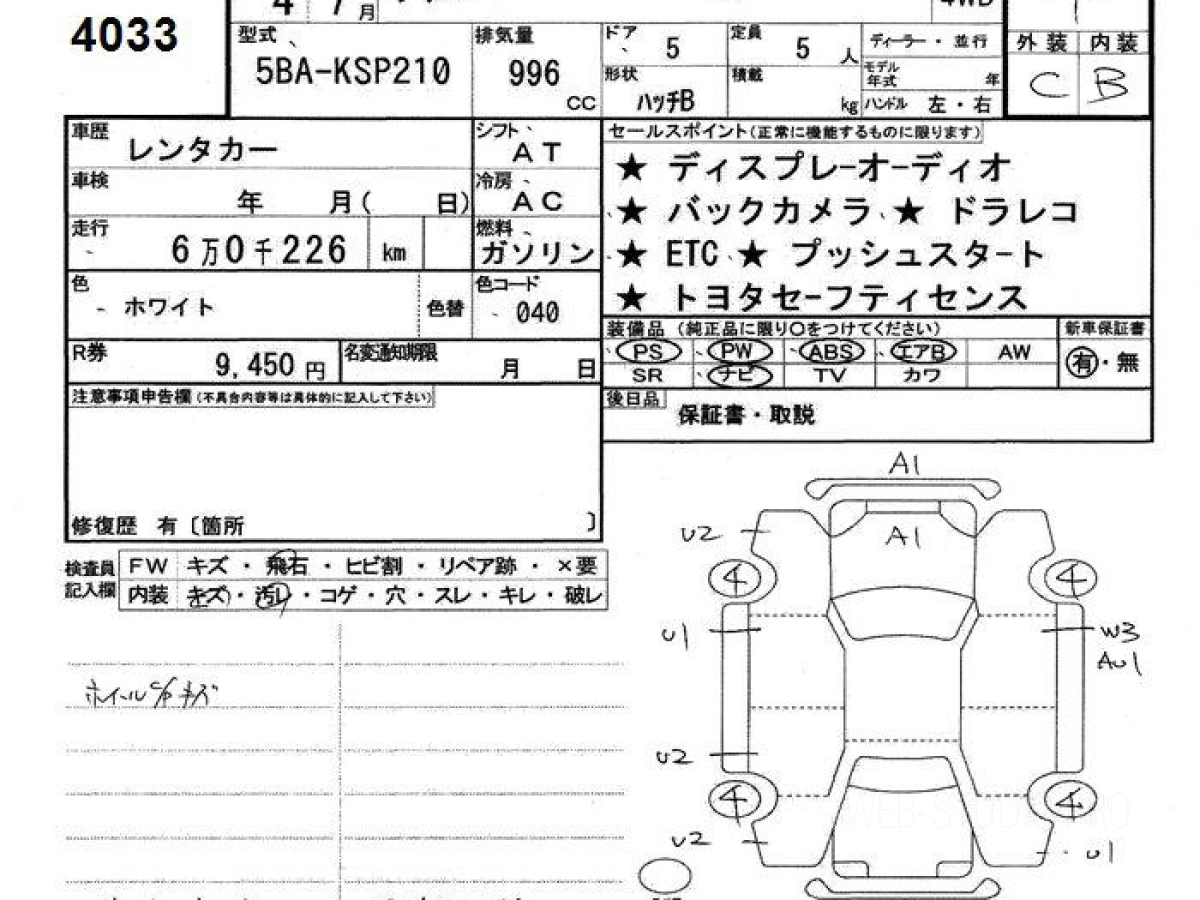 4033
4 7月
4WD
型式 5BA-KSP210
排気量 996 CC
ドア 5
定員 5 人
ディーラー・並行
外装 内装
C B
形状 ハッチB
積載 kg
モデル年式 年
ハンドル 左・右
車歴 レンタカー
シフト AT
車検 年 月( 日)
冷房 AC
走行 6万0千226 km
燃料 ガソリン
色 ホワイト 色替
色コード 040
R券 9,450円
名変通知期限 月 日
注意事項申告欄(不具合内容等は具体的に記入して下さい)
修復歴 有〔箇所 〕
セールスポイント(正常に機能するものに限ります)
★ ディスプレーオーディオ
★ バックカメラ ★ ドラレコ
★ ETC ★ プッシュスタート
★ トヨタセーフティセンス
装備品 (純正品に限り○をつけてください)
新車保証書
PS PW ABS エアB AW
有・無
SR ナビ TV カワ
後日品 保証書・取説
検査員記入欄
FW キズ・飛石・ヒビ割・リペア跡・×要
内装 キズ・汚レ・コゲ・穴・スレ・キレ・破レ
ホイールC/P キズ
A1
U2 A1
4 4
U1 W3
AU1
U2
4 4
U2 U1
WEB-STUDIO.PRO